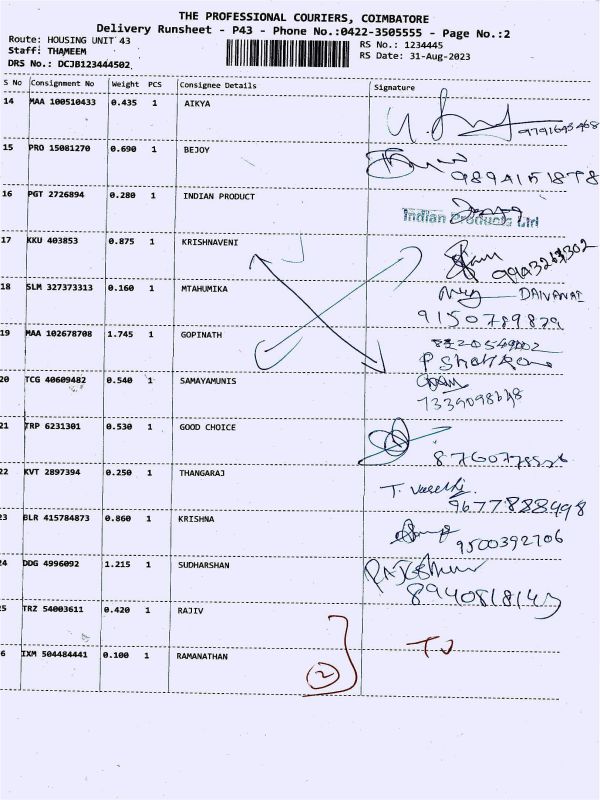 THE PROFESSIONAL COURIERS, COIMBATORE
Delivery Runsheet - P43 - Phone No.:0422-3505555 - Page No.:2
Route: HOUSING UNIT 43
RS No.: 1234445
Staff: THAMEEM
RS Date: 31-Aug-2023
DRS No.: DCJB123444502
S No Consignment No Weight PCS Consignee Details Signature
14 MAA 100510433 0.435 1 AIKYA
15 PRO 15081270 0.690 1 BEJOY 9894151878
16 PGT 2726894 0.280 1 INDIAN PRODUCT Indian Products Ltd
17 KKU 403853 0.875 1 KRISHNAVENI
18 SLM 327373313 0.160 1 MTAHUMIKA
9150789829
19 MAA 102678708 1.745 1 GOPINATH
20 TCG 40609482 0.540 1 SAMAYAMUNIS
21 TRP 6231301 0.530 1 GOOD CHOICE
22 KVT 2897394 0.250 1 THANGARAJ
9677888498
23 BLR 415784873 0.860 1 KRISHNA 9500392706
24 DDG 4996092 1.215 1 SUDHARSHAN
8940818143
25 TRZ 54003611 0.420 1 RAJIV
6 IXM 504484441 0.100 1 RAMANATHAN
2